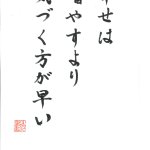 せは
やすより
づく方が早い